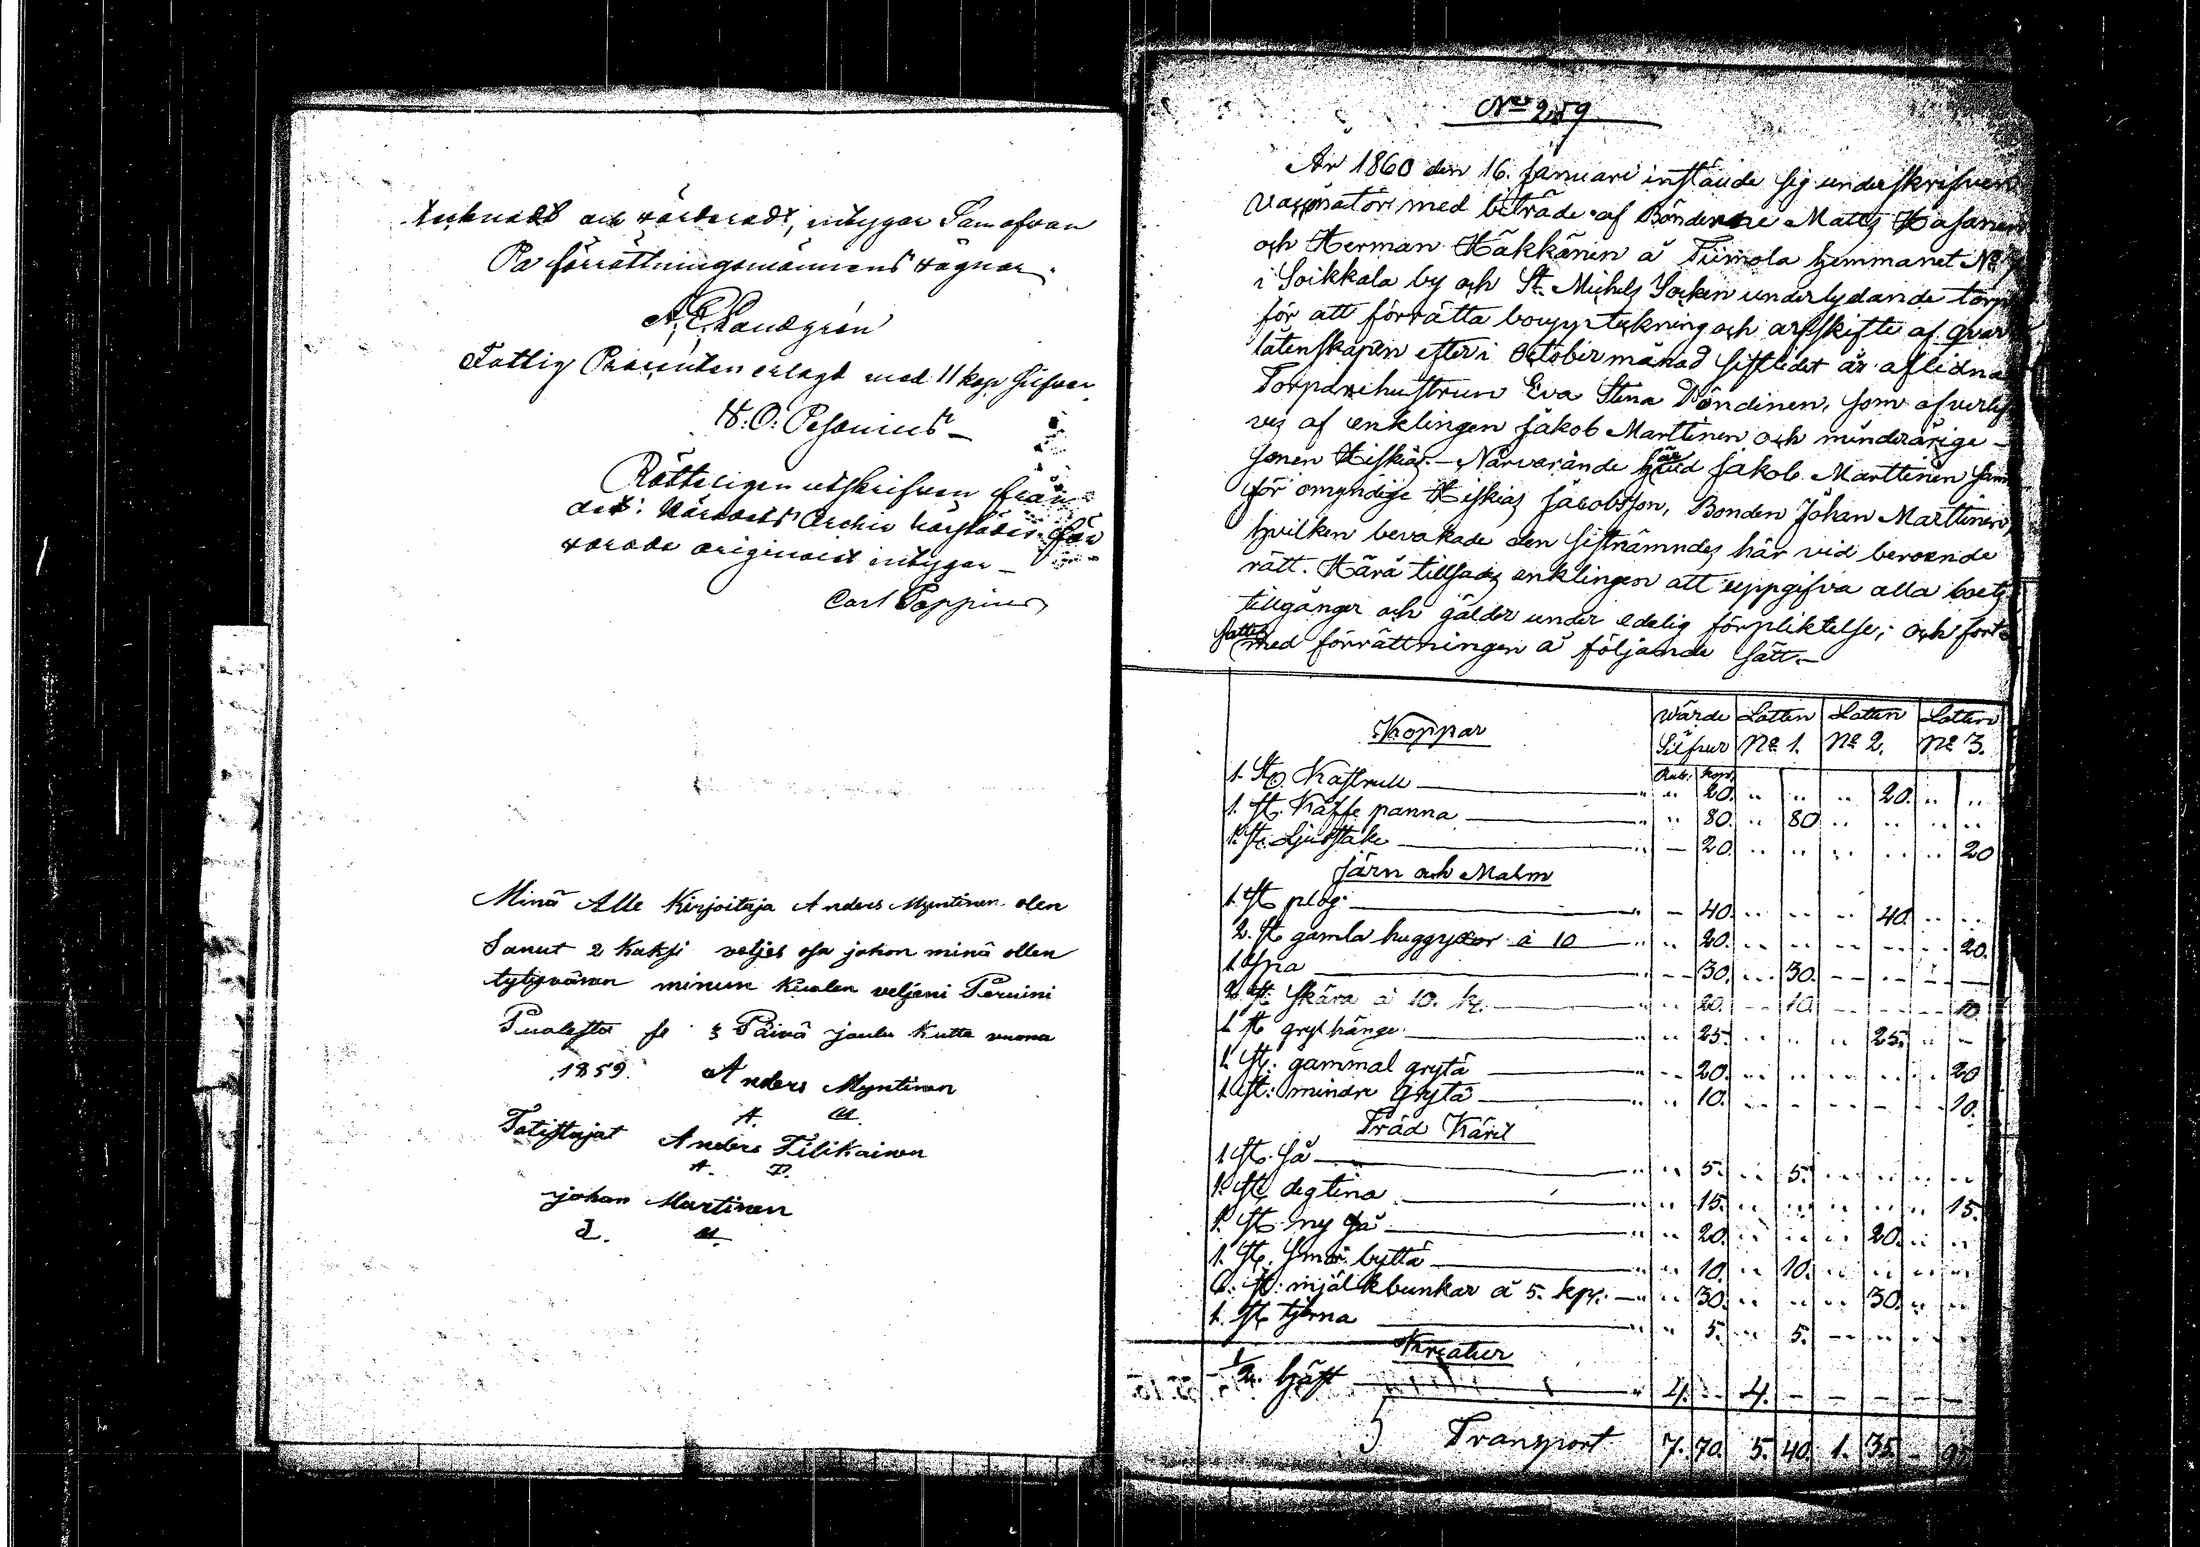 tecknadt och värderadt, intygar Samofvan
På förrättningsmännens vägnar.
A. E. Landgrén
Fattig Procenten erlagt med 11 kop. Silfver
K. O. Pesonius
Rätteligen utskrifven från
det i Häradets Archiv härstädes för
varade originalet intygar
Carl Poppius
Minä Alle Kirjoitaja Anders Myntinen olen
Sanut 2 Kaksi veljes osa johon minä ollen
tytyväinen minun Kuolen veljeni Peruini
Puolesta se 3 Päivä joulu Kutta vuona
1859. Anders Myntinen
A. M.
Totistajat Anders Tilikainen
A. T.
johan Martinen
J. M.
No 259
År 1860 den 16. Januari instäude sig underskrifven
Vaccinatör med biträde af Bönderne Matts Hasanen
och Herman Häkkänen å Tiimola hemmanet No
i Soikkala by och St. Michels Socken underlydande torp
för att förrätta bouppteckning och arfskifte af qvar
låtenskapen efter i October månad sistlidet år aflidna
Torparehustrun Eva Stina Pöndinen, som öfverlef
ves af enklingen Jakob Marttinen och minderårige
Sonen Hiskias. Närvarande här vid Jakob Marttinen Samt
för omyndige Hiskias Jacobsson, Bonden Johan Marttinen,
hvilken bevakade den sistnämndes här vid beroende
rätt. Härå tillsades enklingen att uppgifva alla boets
tillgånger och gälder under edelig förpliktelse; och fort-
sattes med förrättningen å följande sätt.
Koppar Värde Silfver Lotten No 1. Lotten No 2. Lotten No 3.
Rub. Kop.
1. St. Kastrull 20. 20.
1. St. Kaffe panna 80. 80
1. St. Ljusstake 20. 20
Järn och Malm
1. St. plog 40. 40.
2. St. gamla huggyxor à 10 20. 20.
1. lia 30. 30.
2. St. Skära à 10. k. 20. 10. 10.
1. St. grythänge 25. 25.
1. St. gammal gryta 20. 20
1. St. mindre Gryta 10. 10.
Träd Käril
1. St. Så 5. 5.
1. St. degtina 15. 15.
1. St. ny Så 20. 20.
1. St. Smör bytta 10. 10.
6. St. mjölkbunkar à 5. kp. 30. 30.
1. St. tjerna 5. 5.
Kreatur
1/2 häst 4. 4.
Transport 7. 70. 5. 40. 1. 35. 95